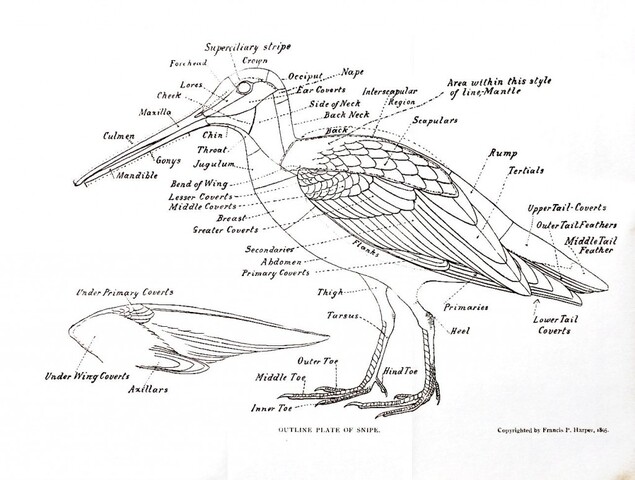 Superciliary stripe
Forehead
Crown
Occiput
Nape
Lores
Ear Coverts
Cheek
Interscapular
Region
Area within this style
of line, Mantle
Side of Neck
Maxilla
Back Neck
Scapulars
Culmen
Chin
Back
Gonys
Throat
Rump
Jugulum
Tertials
Mandible
Bend of Wing
Lesser Coverts
Middle Coverts
Upper Tail-Coverts
Breast
Outer Tail Feathers
Greater Coverts
Middle Tail
Feather
Secondaries
Flanks
Abdomen
Primary Coverts
Under Primary Coverts
Thigh
Primaries
Tarsus
Heel
Lower Tail
Coverts
Outer Toe
Hind Toe
Under Wing Coverts
Middle Toe
Axillars
Inner Toe
OUTLINE PLATE OF SNIPE.
Copyrighted by Francis P. Harper,